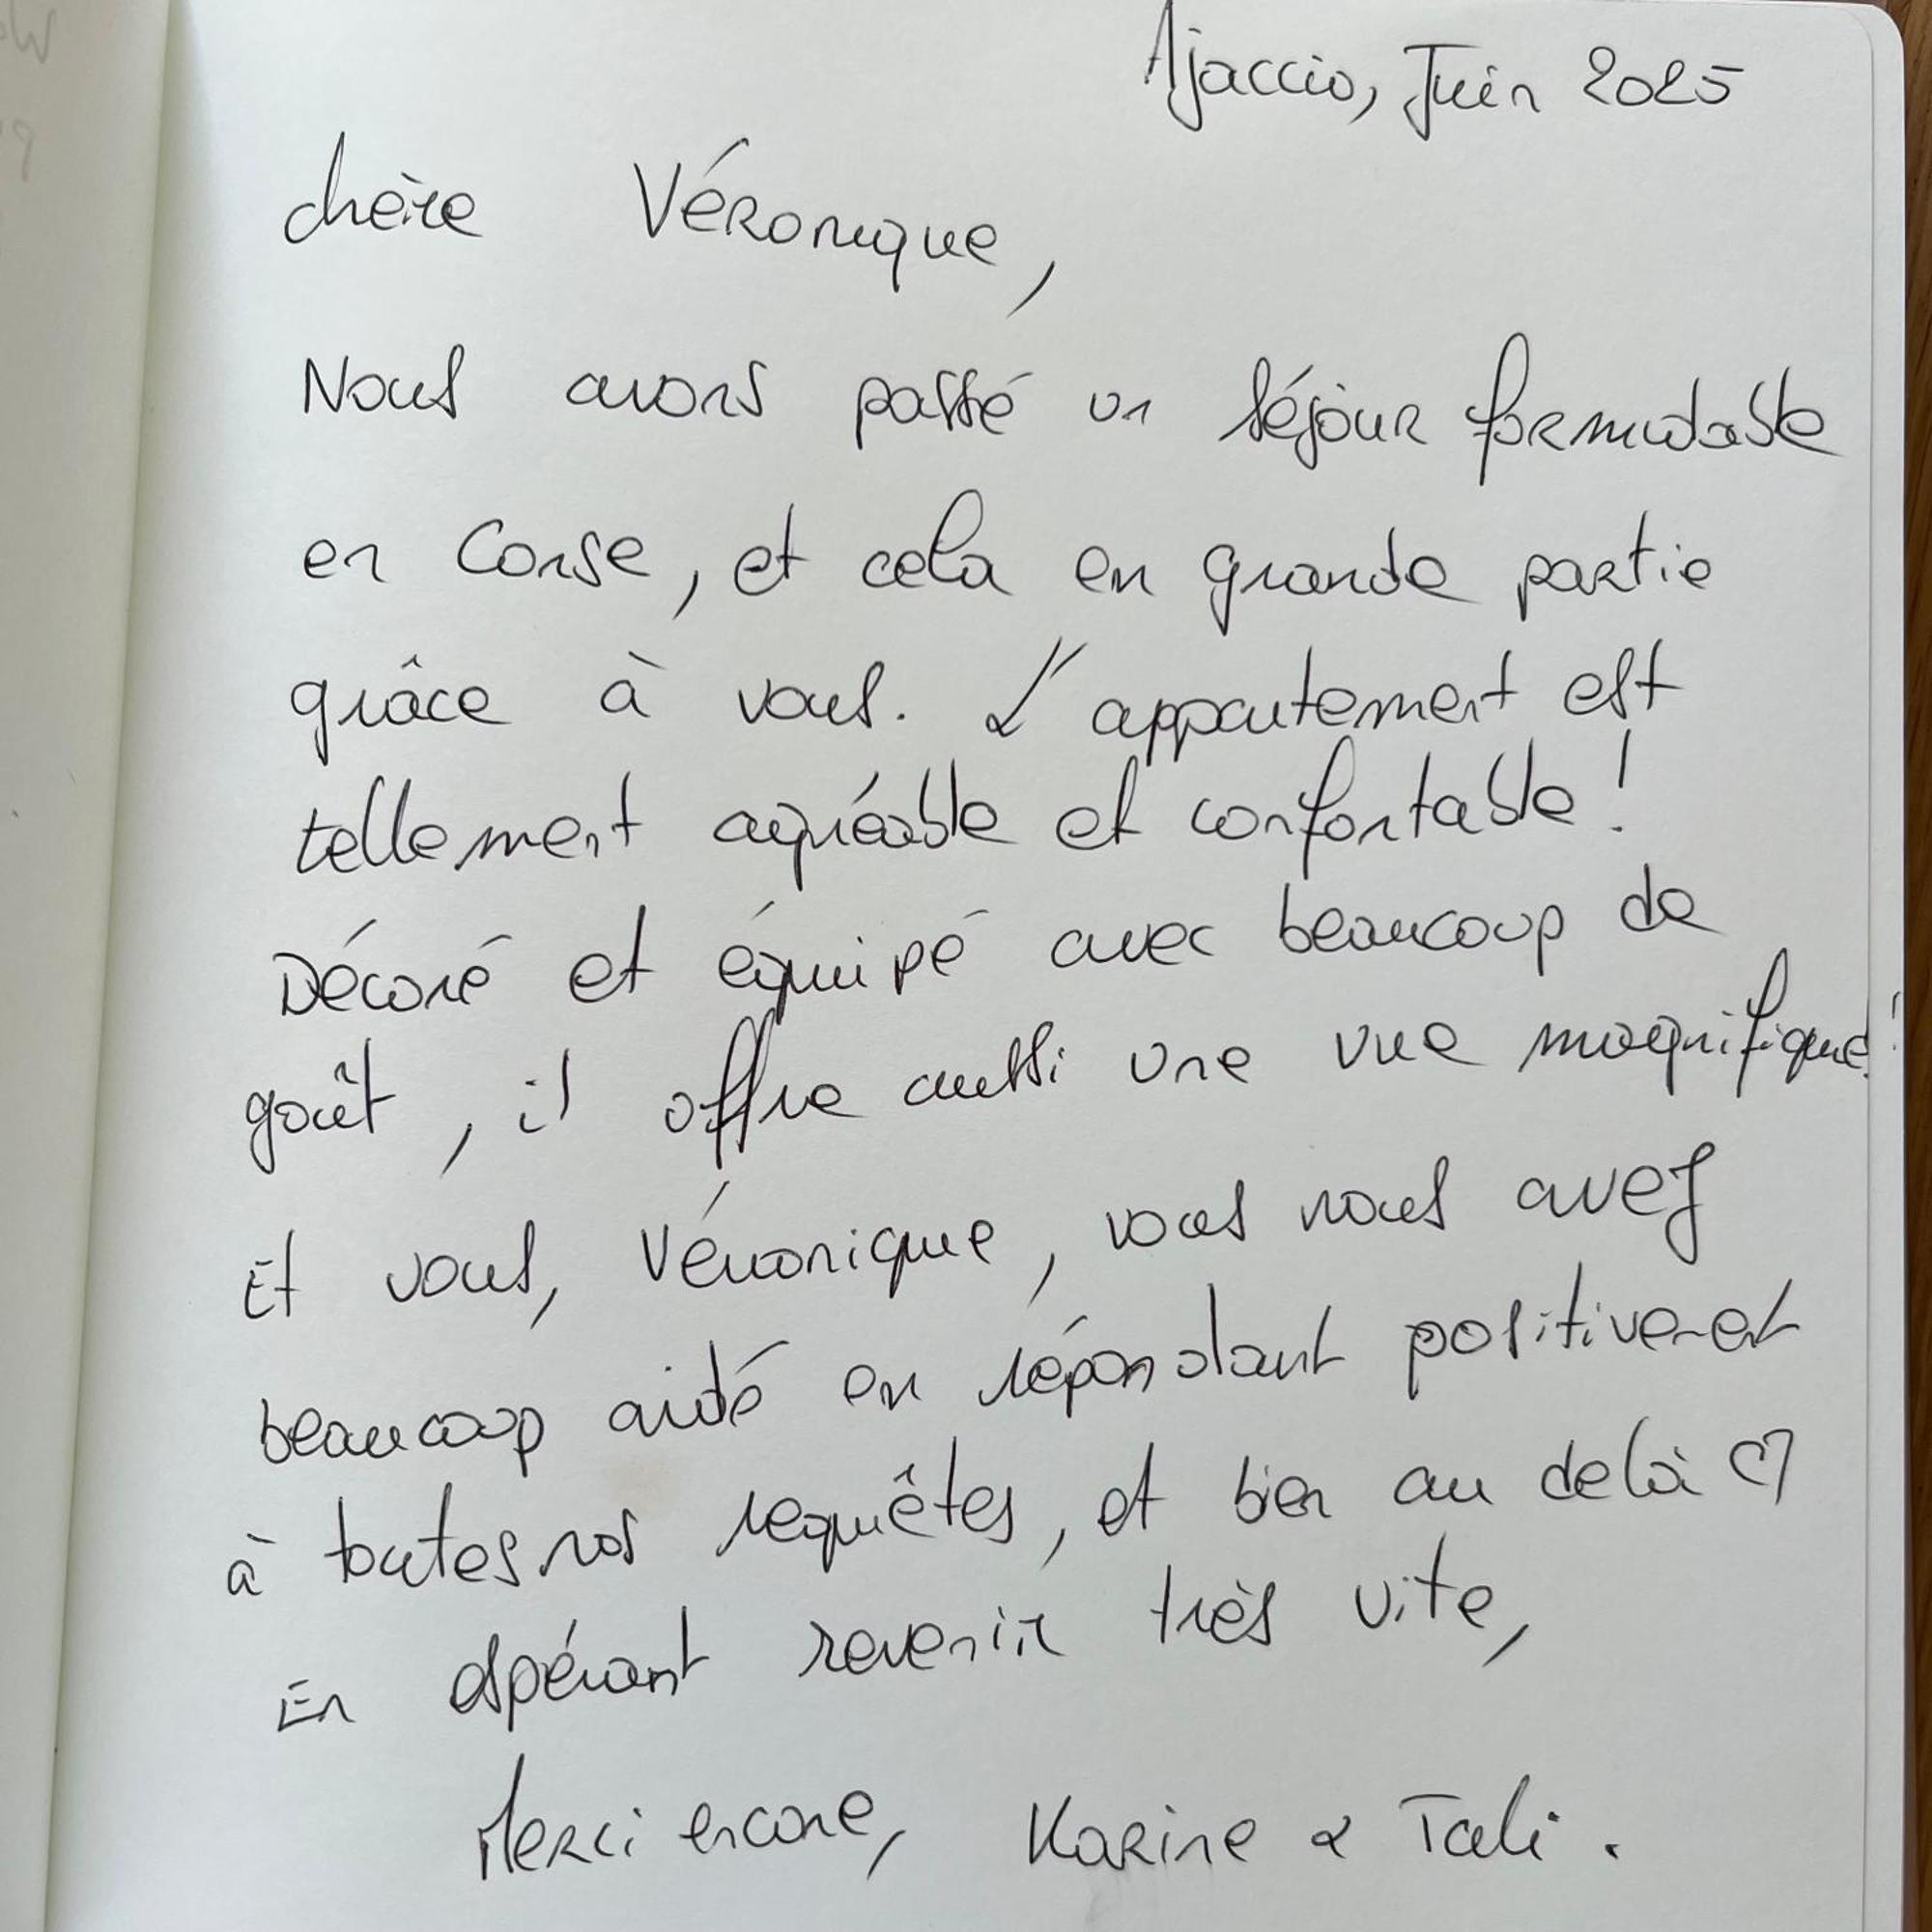 Ajaccio, Juin 2025
chère Véronique,
Nous avons passé un séjour formidable
en Corse, et cela en grande partie
grâce à vous. L'appartement est
tellement agréable et confortable !
Décoré et équipé avec beaucoup de
goût, il offre aussi une vue magnifique !
Et vous, Véronique, vous nous avez
beaucoup aidé en répondant positivement
à toutes nos requêtes, et bien au delà ♡
En espérant revenir très vite,
Merci encore, Karine & Tali.